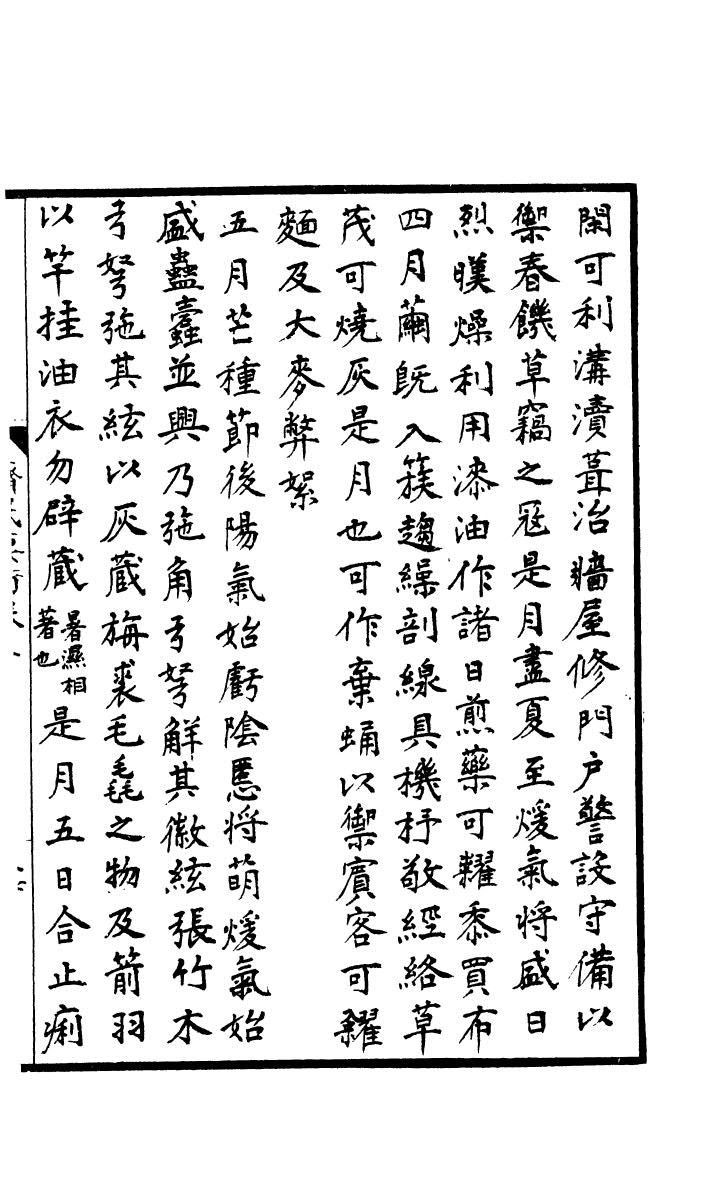 閑可利溝瀆葺治墻屋修門戶警設守備以
禦春饑草竊之冦是月盡夏至煖氣將盛日
烈暵燥利用漆油作諸日煎藥可糶黍買布
四月繭旣入簇趨繰剖線具機杼敬經絡草
茂可燒灰是月也可作棄蛹以禦賓客可糴
麵及大麥弊絮
五月芒種節後陽氣始虧陰慝將萌煖氣始
盛蠱蠹並興乃弛角弓弩解其徽絃張竹木
弓弩弛其絃以灰藏旃裘毛毳之物及箭羽
以竿挂油衣勿辟藏暑濕相著也是月五日合止痢